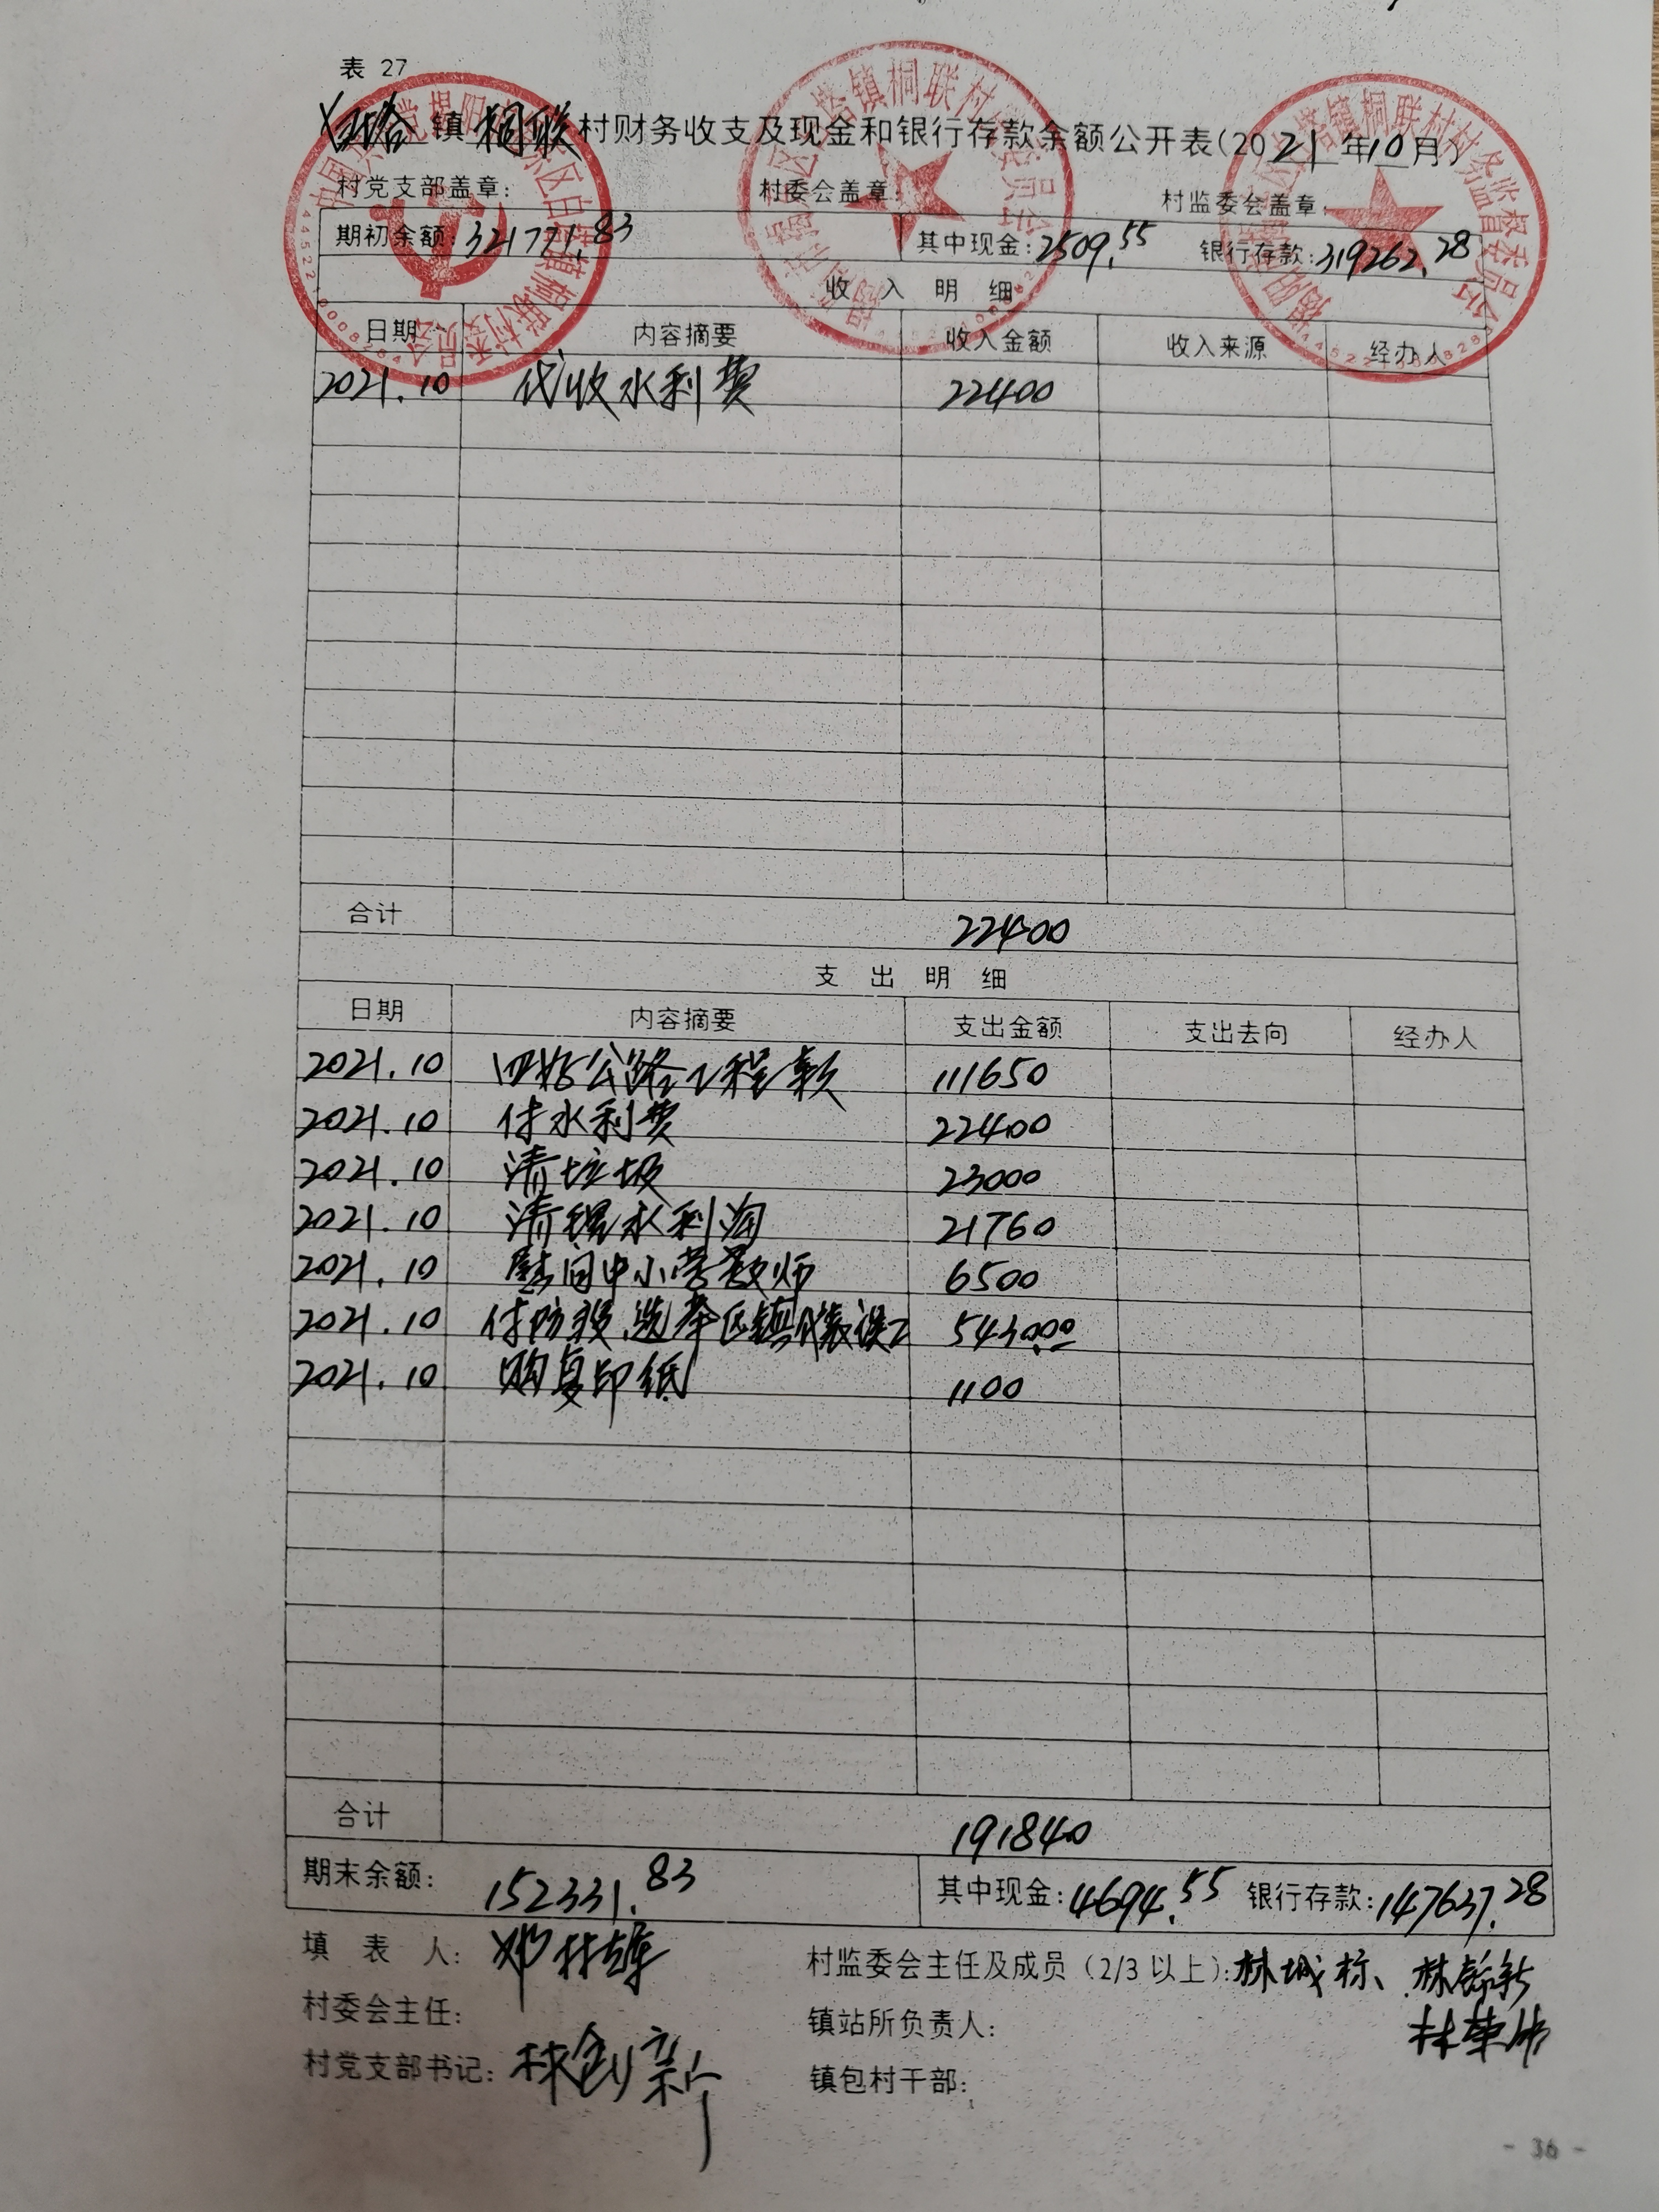 表 27
白塔镇桐联村财务收支及现金和银行存款余额公开表(2021年10月)
村党支部盖章: 村委会盖章: 村监委会盖章:
期初余额: 321771.83 其中现金: 2509.55 银行存款: 319262.28
收入明细
日期 内容摘要 收入金额 收入来源 经办人
2021.10 代收水利费 22400
合计 22400
支出明细
日期 内容摘要 支出金额 支出去向 经办人
2021.10 四好公路工程款 111650
2021.10 付水利费 22400
2021.10 清垃圾 23000
2021.10 清理水利沟 21760
2021.10 慰问中小学教师 6500
2021.10 付防疫、选举区镇代表误工 5430.00
2021.10 购复印纸 1100
合计 191840
期末余额: 152331.83 其中现金: 4694.55 银行存款: 147637.28
填表人: 邓林雄 村监委会主任及成员(2/3以上): 林城标、林
村委会主任: 镇站所负责人: 林
村党支部书记: 林创新 镇包村干部:
- 36 -